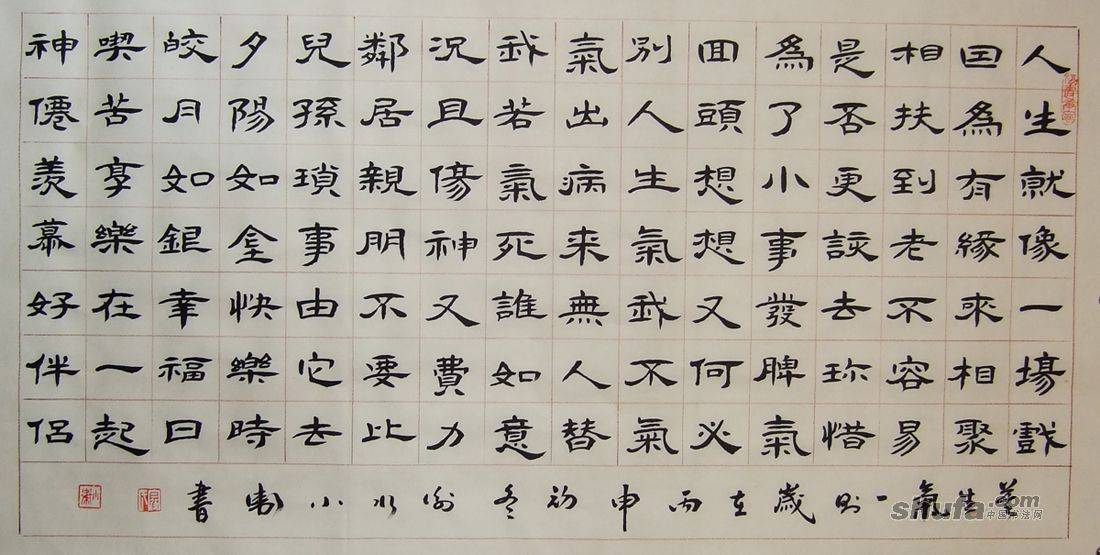 人生就像一場戲
因為有緣來相聚
相扶到老不容易
是否更該去珍惜
為了小事發脾氣
回頭想想又何必
別人生氣我不氣
氣出病来無人替
我若氣死誰如意
況且傷神又費力
鄰居親朋不要比
兒孫瑣事由它去
夕陽如金快樂時
皎月如銀幸福日
喫苦享樂在一起
神僊羨慕好伴侶
莫生氣一則歲在丙申初冬水小書
shufa.com
中国书法网